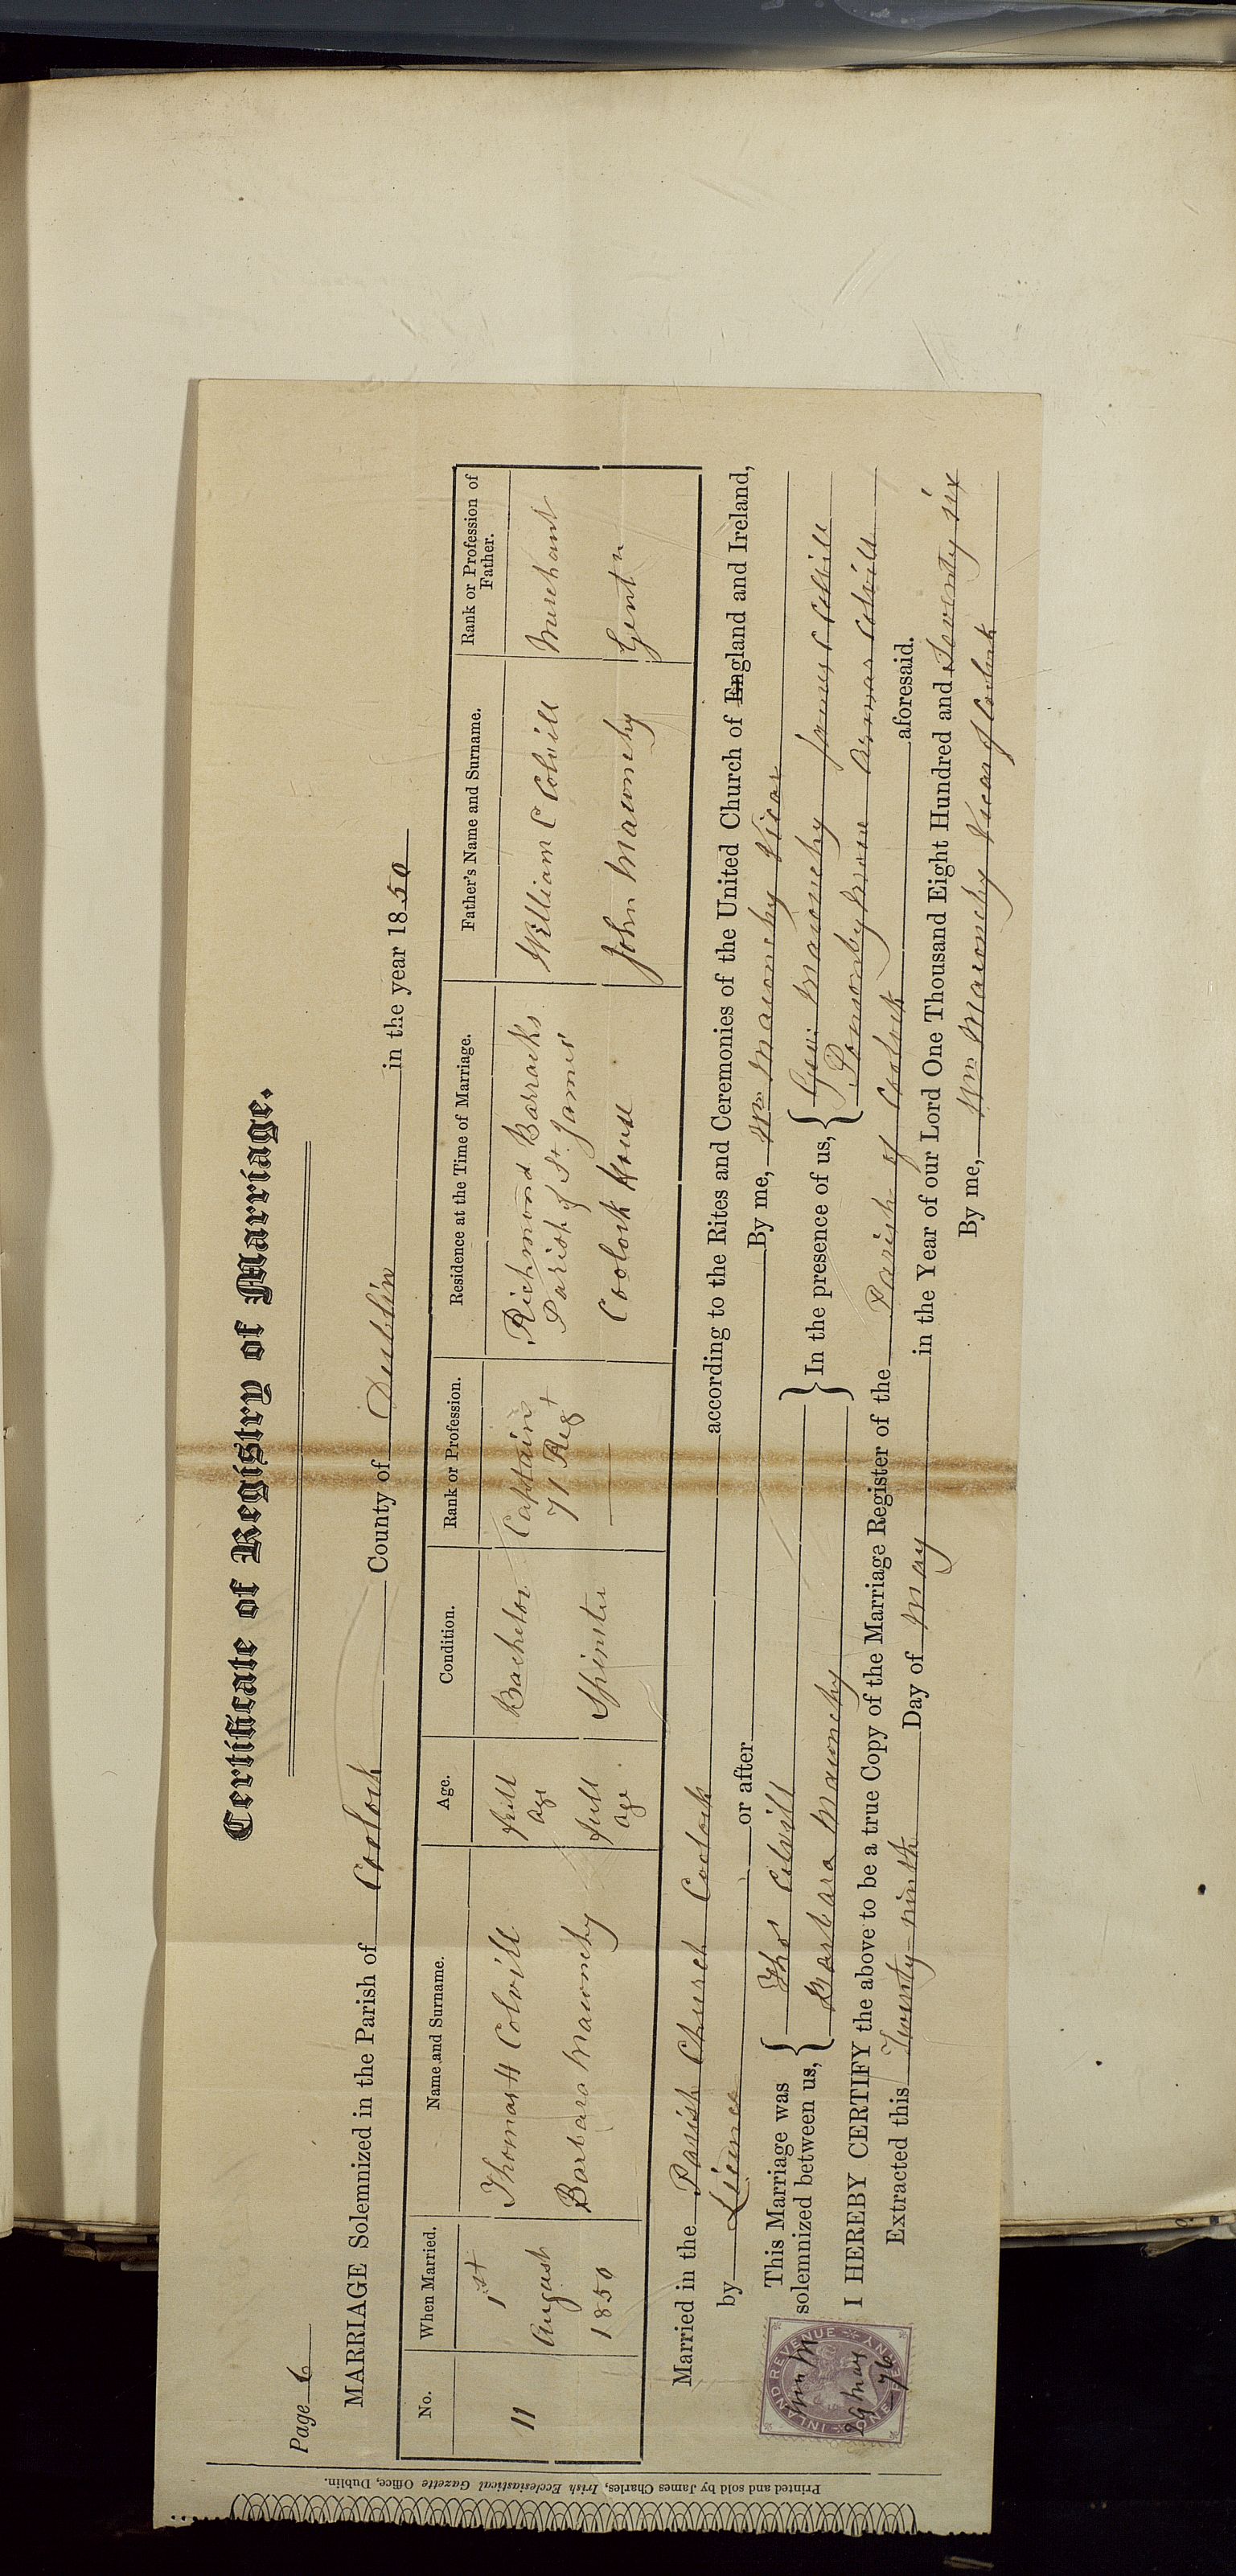 Page 6
Certificate of Registry of Marriage.
MARRIAGE Solemnized in the Parish of Coolock County of Dublin in the year 1850
No. When Married. Name and Surname. Age. Condition. Rank or Profession. Residence at the Time of Marriage. Father's Name and Surname. Rank or Profession of Father.
11 1st August 1850 Thomas H Colvill full age Bachelor Captain 71 Regt Richmond Barracks Parish of St. James' William C Colvill Merchant
Barbara Maconchy full age Spinster Coolock House John Maconchy Gent n
Married in the Parish Church Coolock according to the Rites and Ceremonies of the United Church of England and Ireland,
by Licence or after By me, Wm Maconchy Vicar
This Marriage was solemnized between us, Thos Colvill In the presence of us, Geo: Maconchy James C Colvill
Barbara Maconchy Ponsonby Moore Colvill
I HEREBY CERTIFY the above to be a true Copy of the Marriage Register of the Parish of Coolock aforesaid.
Extracted this Twenty-ninth Day of May in the Year of our Lord One Thousand Eight Hundred and Seventy six
By me, Wm Maconchy Vicar of Coolock
INLAND REVENUE
ONE PENNY
Wm M
29 May
76
Printed and sold by James Charles, Irish Ecclesiastical Gazette Office, Dublin.